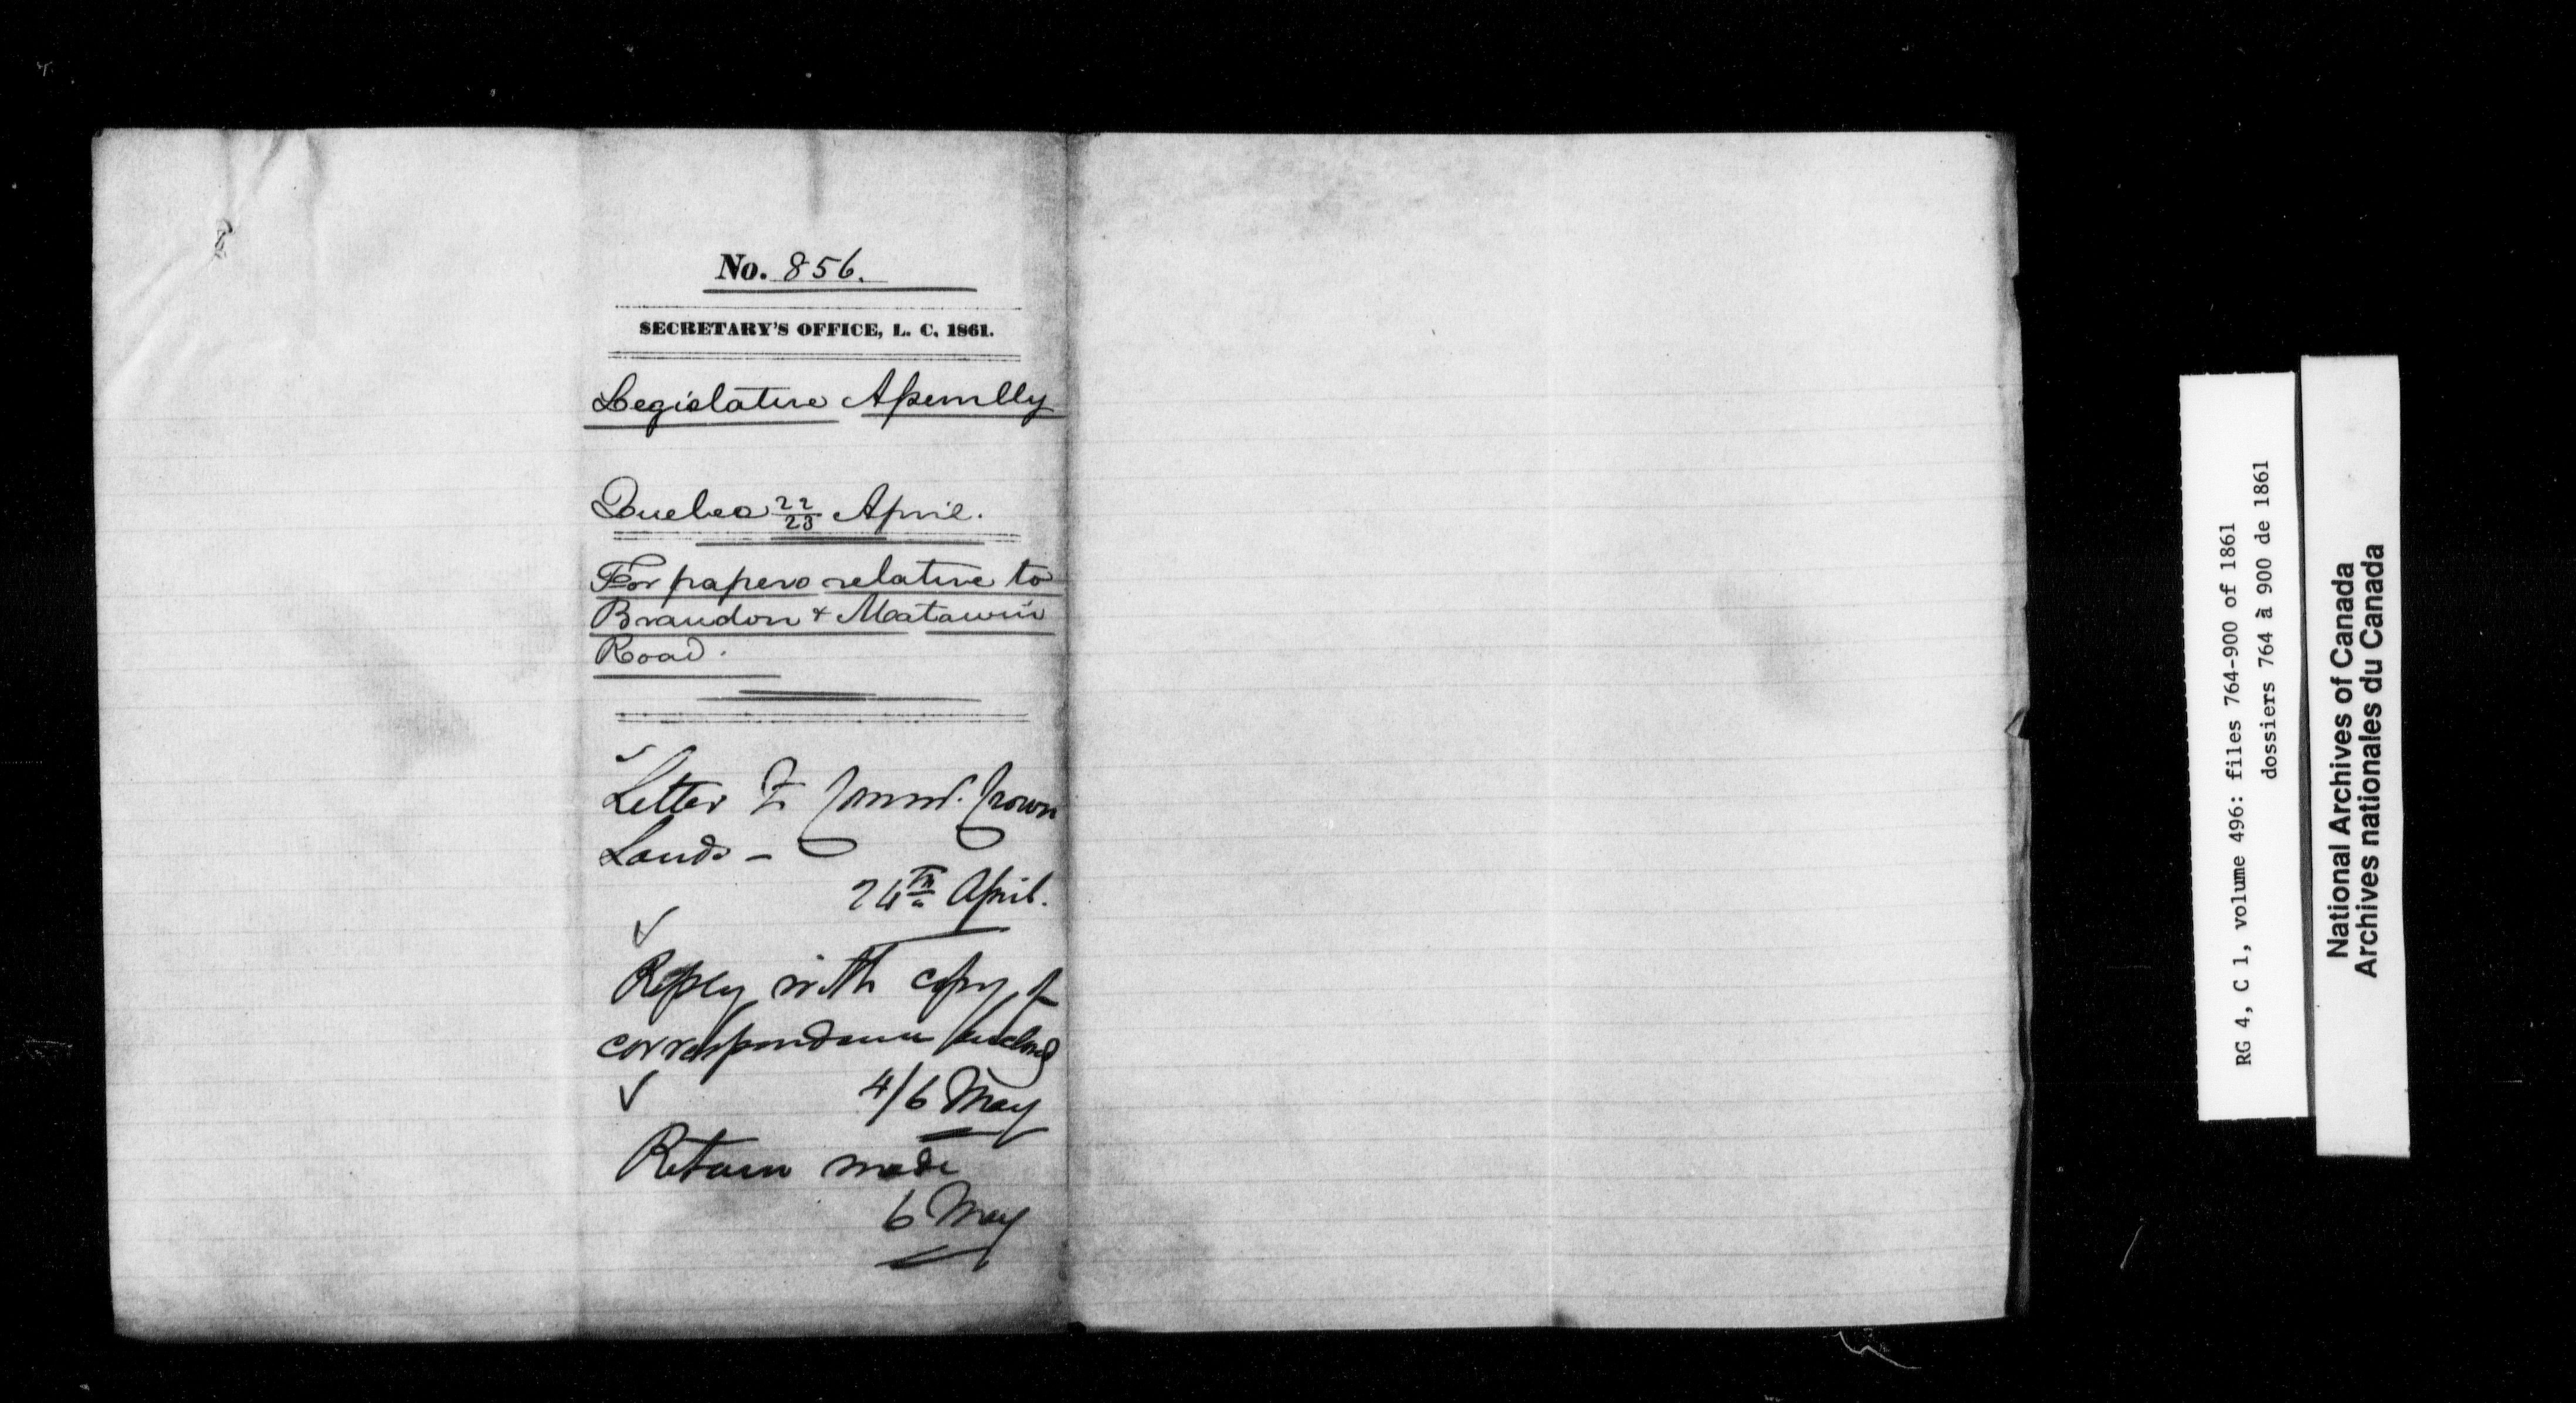 No. 856.
SECRETARY'S OFFICE, L. C. 1861.
Legislative Assembly
Quebec 22/23 April.
For papers relative to
Brandon & Matawin
Road.
Letter to Commr. Crown
Lands –
24th April.
Reply with copy of
correspondence enclosed
4/6 May
Return made
6 May
RG 4, C 1, volume 496: files 764-900 of 1861
dossiers 764 à 900 de 1861
National Archives of Canada
Archives nationales du Canada